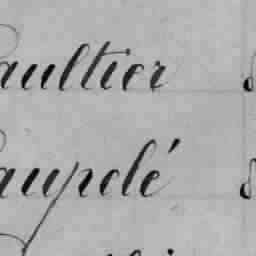 aultier
aupelé